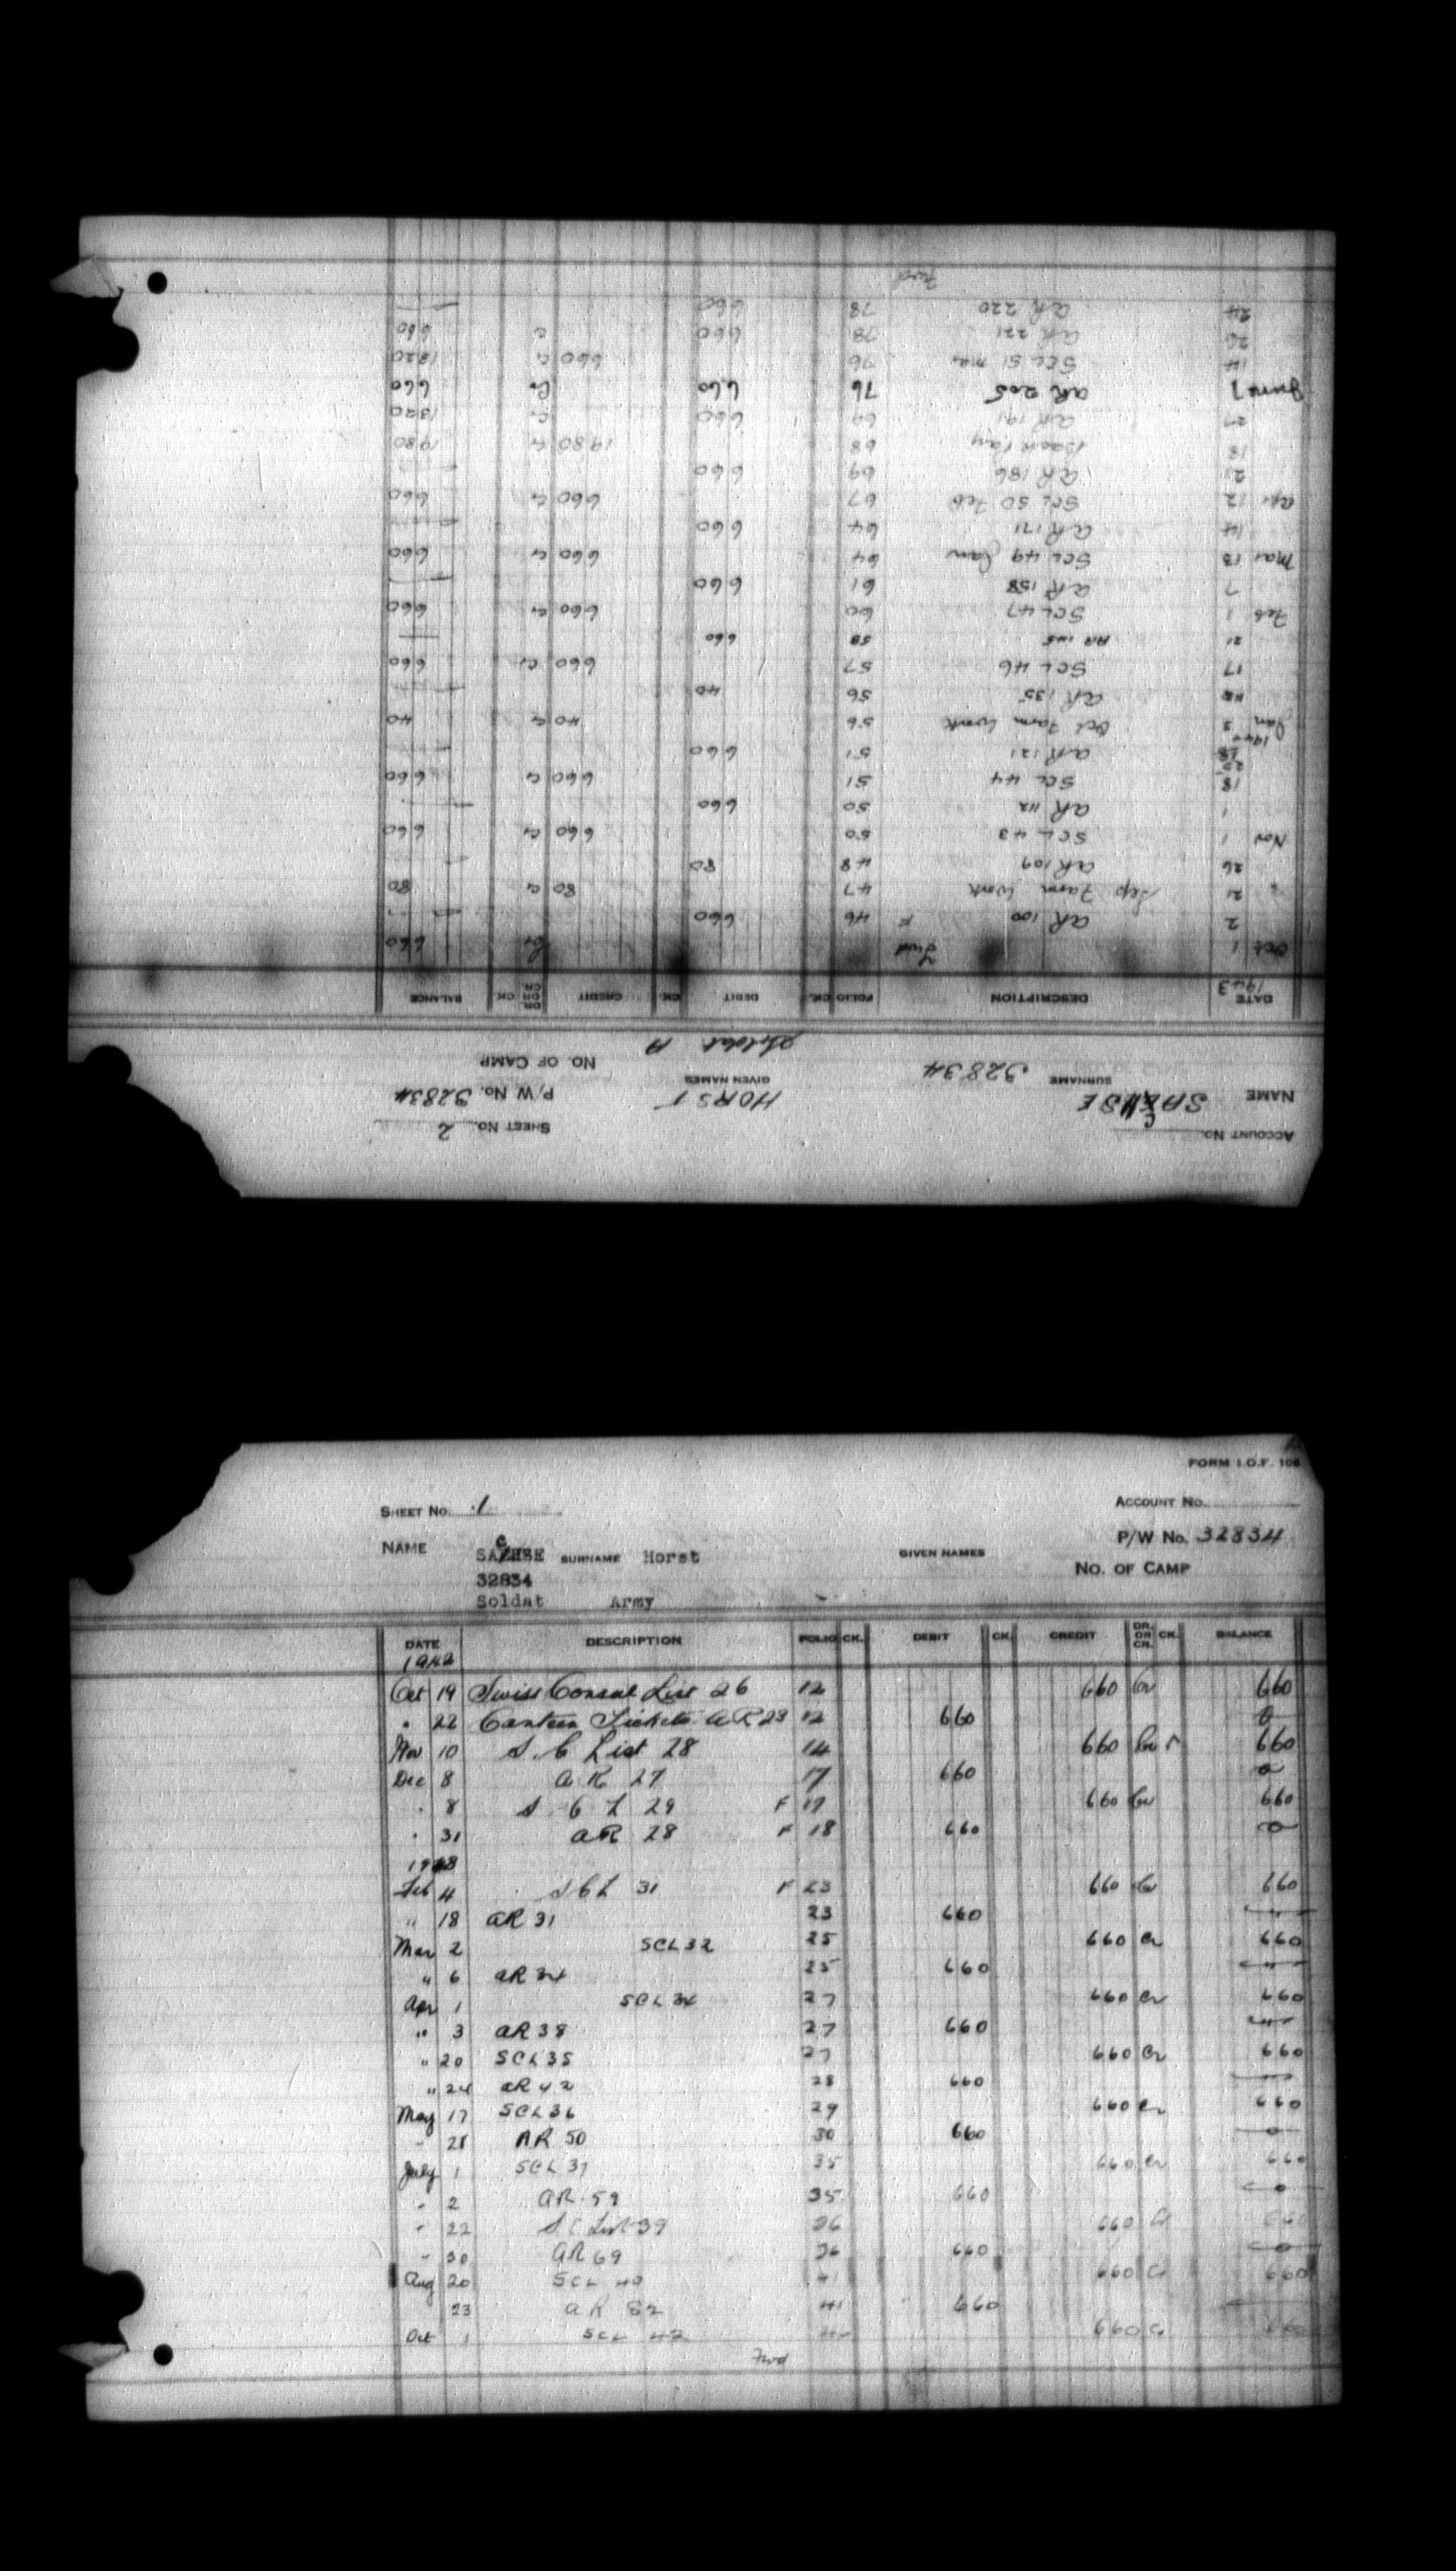 FORM I.O.F. 108
SHEET No. 1 ACCOUNT No.
P/W No. 32834
NAME SACHSE SURNAME Horst GIVEN NAMES
32834 NO. OF CAMP
Soldat Army
DATE DESCRIPTION FOLIO CK. DEBIT CK. CREDIT DR. OR CR. CK. BALANCE
1942
Oct 19 Swiss Consul List 26 12 660 Cr 660
" 22 Canteen Tickets AR 23 12 660 0
Nov 10 S. C List 28 14 660 Cr 660
Dec 8 AR 27 17 660 0
" 8 S C L 29 F 17 660 Cr 660
" 31 AR 28 F 18 660 0
1943
Feb 4 SCL 31 F 23 660 Cr 660
" 18 AR 31 23 660 —
Mar 2 SCL 32 25 660 Cr 660
" 6 AR 34 25 660 —
Apr 1 SCL 34 27 660 Cr 660
" 3 AR 38 27 660 —
" 20 SCL 35 27 660 Cr 660
" 24 AR 42 28 660 —
May 17 SCL 36 29 660 Cr 660
" 28 AR 50 30 660 0
July 1 SCL 37 35 660 Cr 660
" 2 AR 59 35 660 0
" 22 S C List 39 36 660 Cr 660
" 30 AR 69 36 660 0
Aug 20 SCL 40 41 660 Cr 660
23 AR 82 41 660 —
Oct 1 SCL 42 660 Cr
Fwd
ACCOUNT No. SHEET No. 2
NAME SACHSE SURNAME 32834 HORST GIVEN NAMES P/W No. 32834
Soldat A NO. OF CAMP
DATE DESCRIPTION FOLIO CK. DEBIT CK. CREDIT DR. OR CR. CK. BALANCE
1943
Oct 1 Fwd Cr 660
2 AR 100 F 46 660 —
" 21 Sep Farm Work 47 80 Cr 80
26 AR 109 48 80 —
Nov 1 SCL 43 50 660 Cr 660
1 AR 112 50 660 —
18 SCL 44 51 660 Cr 660
25 AR 121 51 660 —
1944
Jan 3 Oct Farm Work 56 40 Cr 40
AR 135 56 40 —
17 SCL 46 57 660 Cr 660
21 AR 145 58 660 —
Feb 1 SCL 47 60 660 Cr 660
7 AR 158 61 660 —
Mar 13 SCL 49 Jan 64 660 Cr 660
14 AR 171 64 660 —
Apr 12 SCL 50 Feb 67 660 Cr 660
21 AR 186 69 660 —
18 Back Pay 68 1980 Cr 1980
27 AR 191 69 660 Cr 1320
June 7 AR 205 76 660 Cr 660
14 SCL 51 Mar 76 660 Cr 1320
26 AR 221 78 660 Cr 660
24 AR 220 78 660 —
Fwd